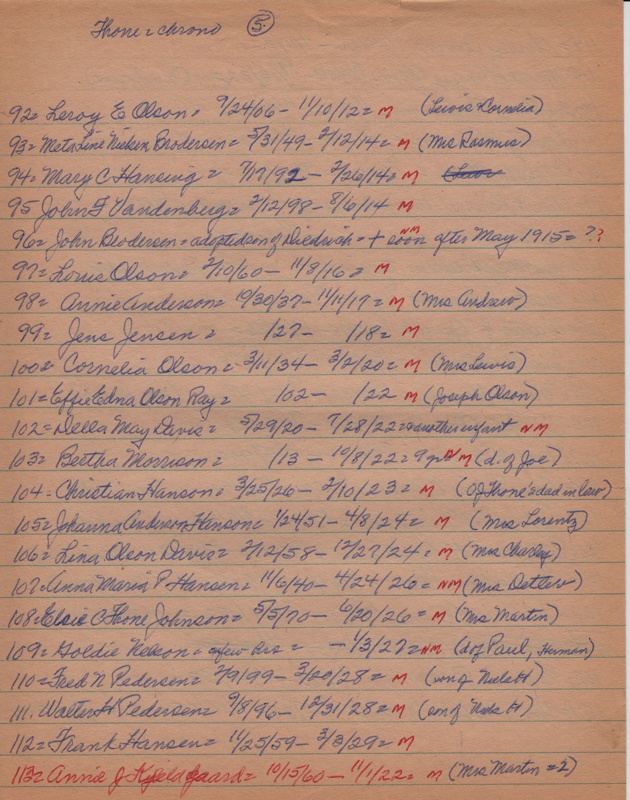 Thone = chrono (5.)
92= Leroy E Olson= 9/24/06 - 11/10/12= M (Lewis Cornelia)
93= Meta Line Nicken Brodersen= 5/31/49 - 2/12/14= M (Mrs Rasmus)
94= Mary C Hansing= 7/17/92 - 2/26/14= M
95 John F Vandenberg= 2/12/98 - 8/6/14 M
96= John Brodersen= adopted son of Diedrich= + soon after May 1915= NM ??
97= Louis Olson= 2/10/60 - 11/8/16= M
98= Annie Anderson= 10/30/37 - 11/11/17= M (Mrs Andrew)
99= Jens Jensen= /27 - /18= M
100= Cornelia Olson= 3/11/34 - 3/2/20= M (Mrs Lewis)
101= Effie Edna Olson Ray= /02 - /22 M (Joseph Olson)
102= Della May Davis= 5/29/20 - 7/28/22= another infant NM
103= Bertha Morrison= /13 - 10/8/22= 9 yrs NM (d. of Joe)
104= Christian Hanson= 3/25/26 - 2/10/23= M (OJ Thone's dad in law)
105= Johanna Anderson Hanson= 1/24/51 - 4/8/24= M (Mrs Lorentz)
106= Lina Olson Davis= 2/12/58 - 12/27/24= M (Mrs Charley)
107= Anna Maria P Hansen= 11/6/40 - 4/24/26= NM (Mrs Detlew)
108= Elsie C Thone Johnson= 5/5/70 - 6/20/26= M (Mrs Martin)
109= Goldie Nelson= a few hrs= - 1/3/27= NM (d of Paul, Herman)
110= Fred N Pedersen= 2/9/99 - 3/20/28= M (son of Niels H)
111. Walter H Pedersen= 9/8/96 - 12/31/28= M (son of Niels H)
112= Frank Hansen= 11/25/59 - 3/3/29= M
113= Annie J Kjeldgaard= 10/15/60 - 11/1/22= M (Mrs Martin =2)